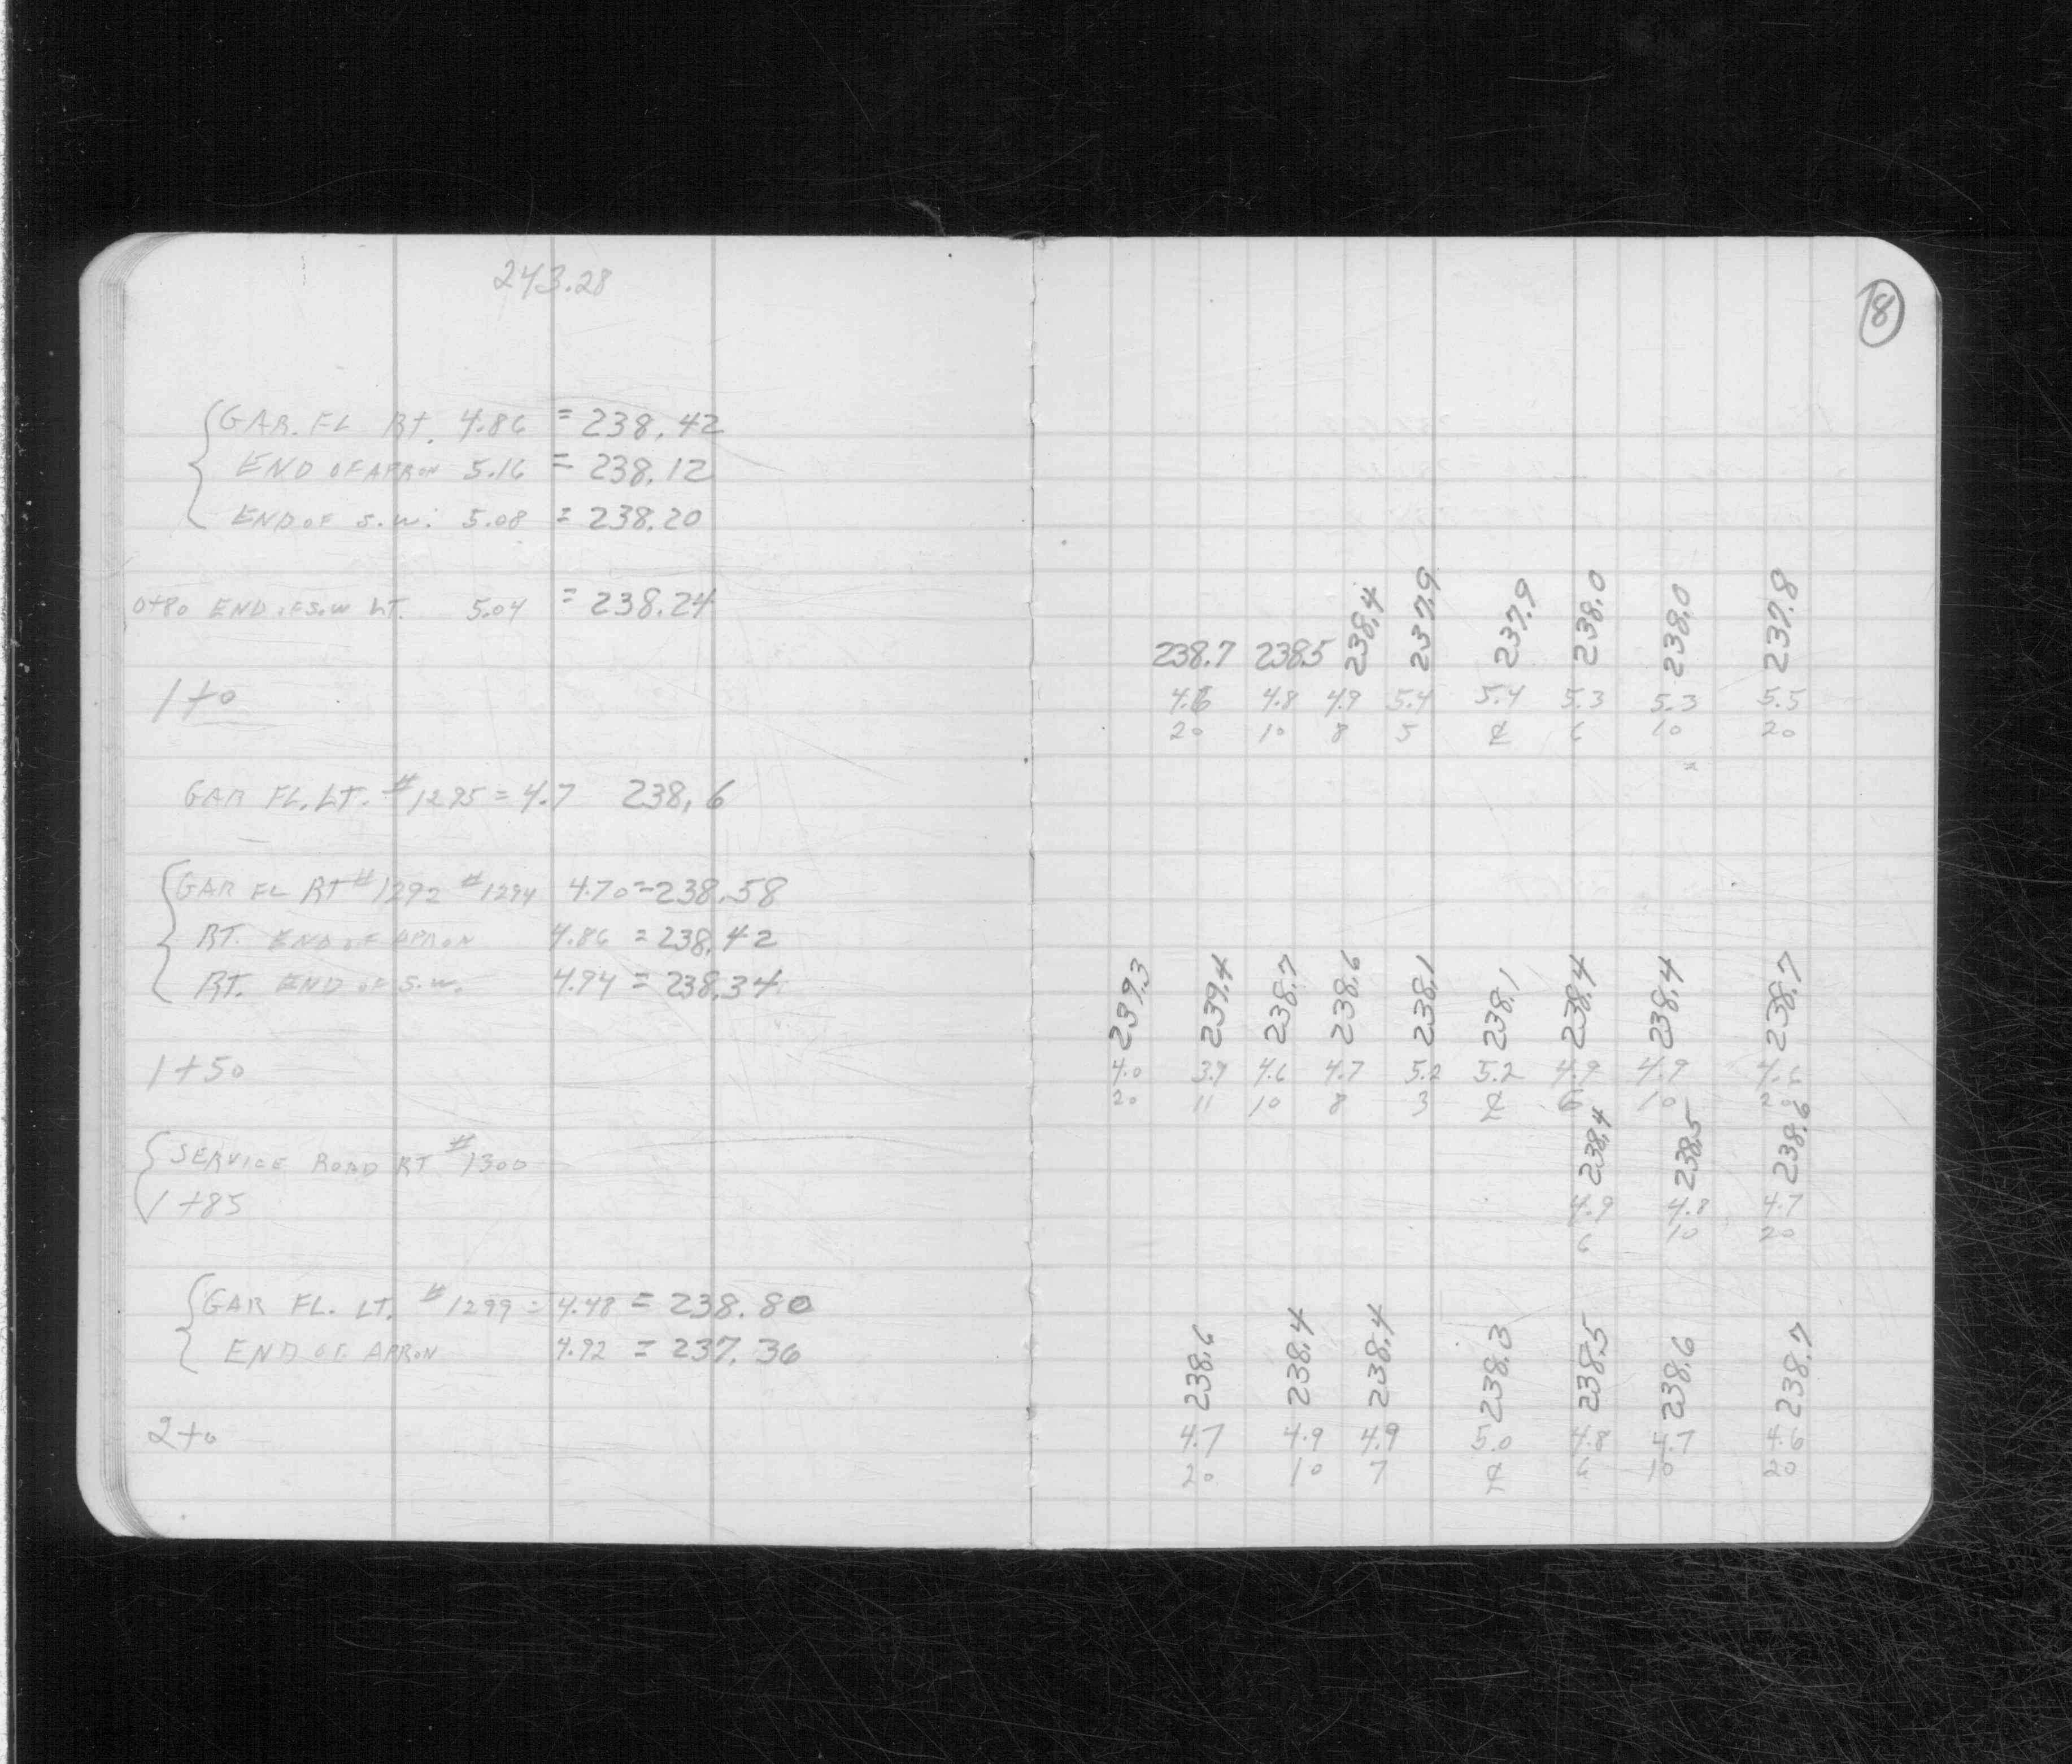 243.28
GAR. FL RT. 4.86 = 238.42
END OF APRON 5.16 = 238.12
END OF S.W. 5.08 = 238.20
0+80 END OF S.W LT. 5.04 = 238.24
1+0
GAR FL. LT. #1295 = 4.7 238.6
GAR FL RT #1292 #1294 4.70 = 238.58
RT. END OF APRON 4.86 = 238.42
RT. END OF S.W. 4.94 = 238.34
1+50
SERVICE ROAD RT #1300
1+85
GAR FL. LT. #1299 = 4.48 = 238.80
END OF APRON 4.92 = 237.36
2+0
18
238.7 238.5 238.4 237.9 237.9 238.0 238.0 237.8
4.6 4.8 4.9 5.4 5.4 5.3 5.3 5.5
20 10 8 5 ℄ 6 10 20
239.3 239.4 238.7 238.6 238.1 238.1 238.4 238.4 238.7
4.0 3.9 4.6 4.7 5.2 5.2 4.9 4.9 4.6
20 11 10 8 3 ℄ 6 10 20
238.4 238.5 238.6
4.9 4.8 4.7
6 10 20
238.6 238.4 238.4 238.3 238.5 238.6 238.7
4.7 4.9 4.9 5.0 4.8 4.7 4.6
20 10 7 ℄ 6 10 20